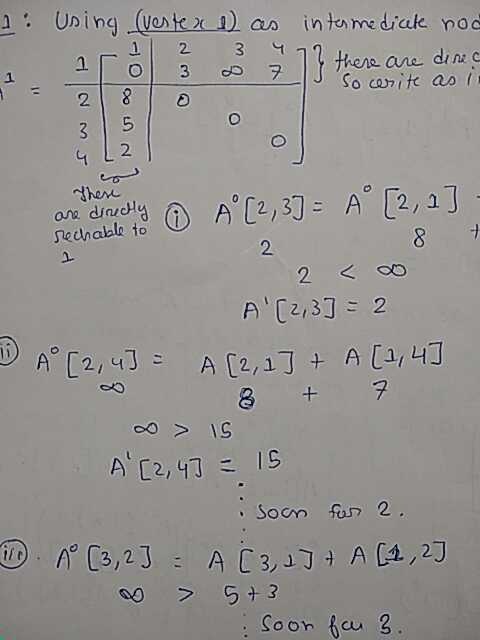 1: Using (vertex 1) as intermediate nod
1 2 3 4
1 0 3 ∞ 7 } there are direc
A¹ = So write as i
2 8 0
3 5 0
4 2 0
There
are directly
rechable to
1
(i) A⁰[2,3] = A⁰[2,1] +
2 8 +
2 < ∞
A'[2,3] = 2
ii) A⁰[2,4] = A[2,1] + A[1,4]
∞ 8 + 7
∞ > 15
A'[2,4] = 15
: soon for 2.
iii). A⁰[3,2] = A[3,1] + A[1,2]
∞ > 5+3
: soon for 3.